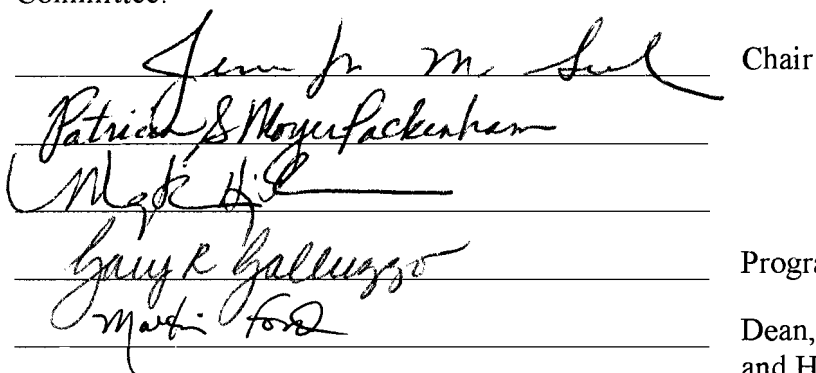 Committee:
Jennifer M. Suh Chair
Patricia S Moyer Packenham
Mark
Gary R Galluzzo Progra
Martin Ford Dean,
and H